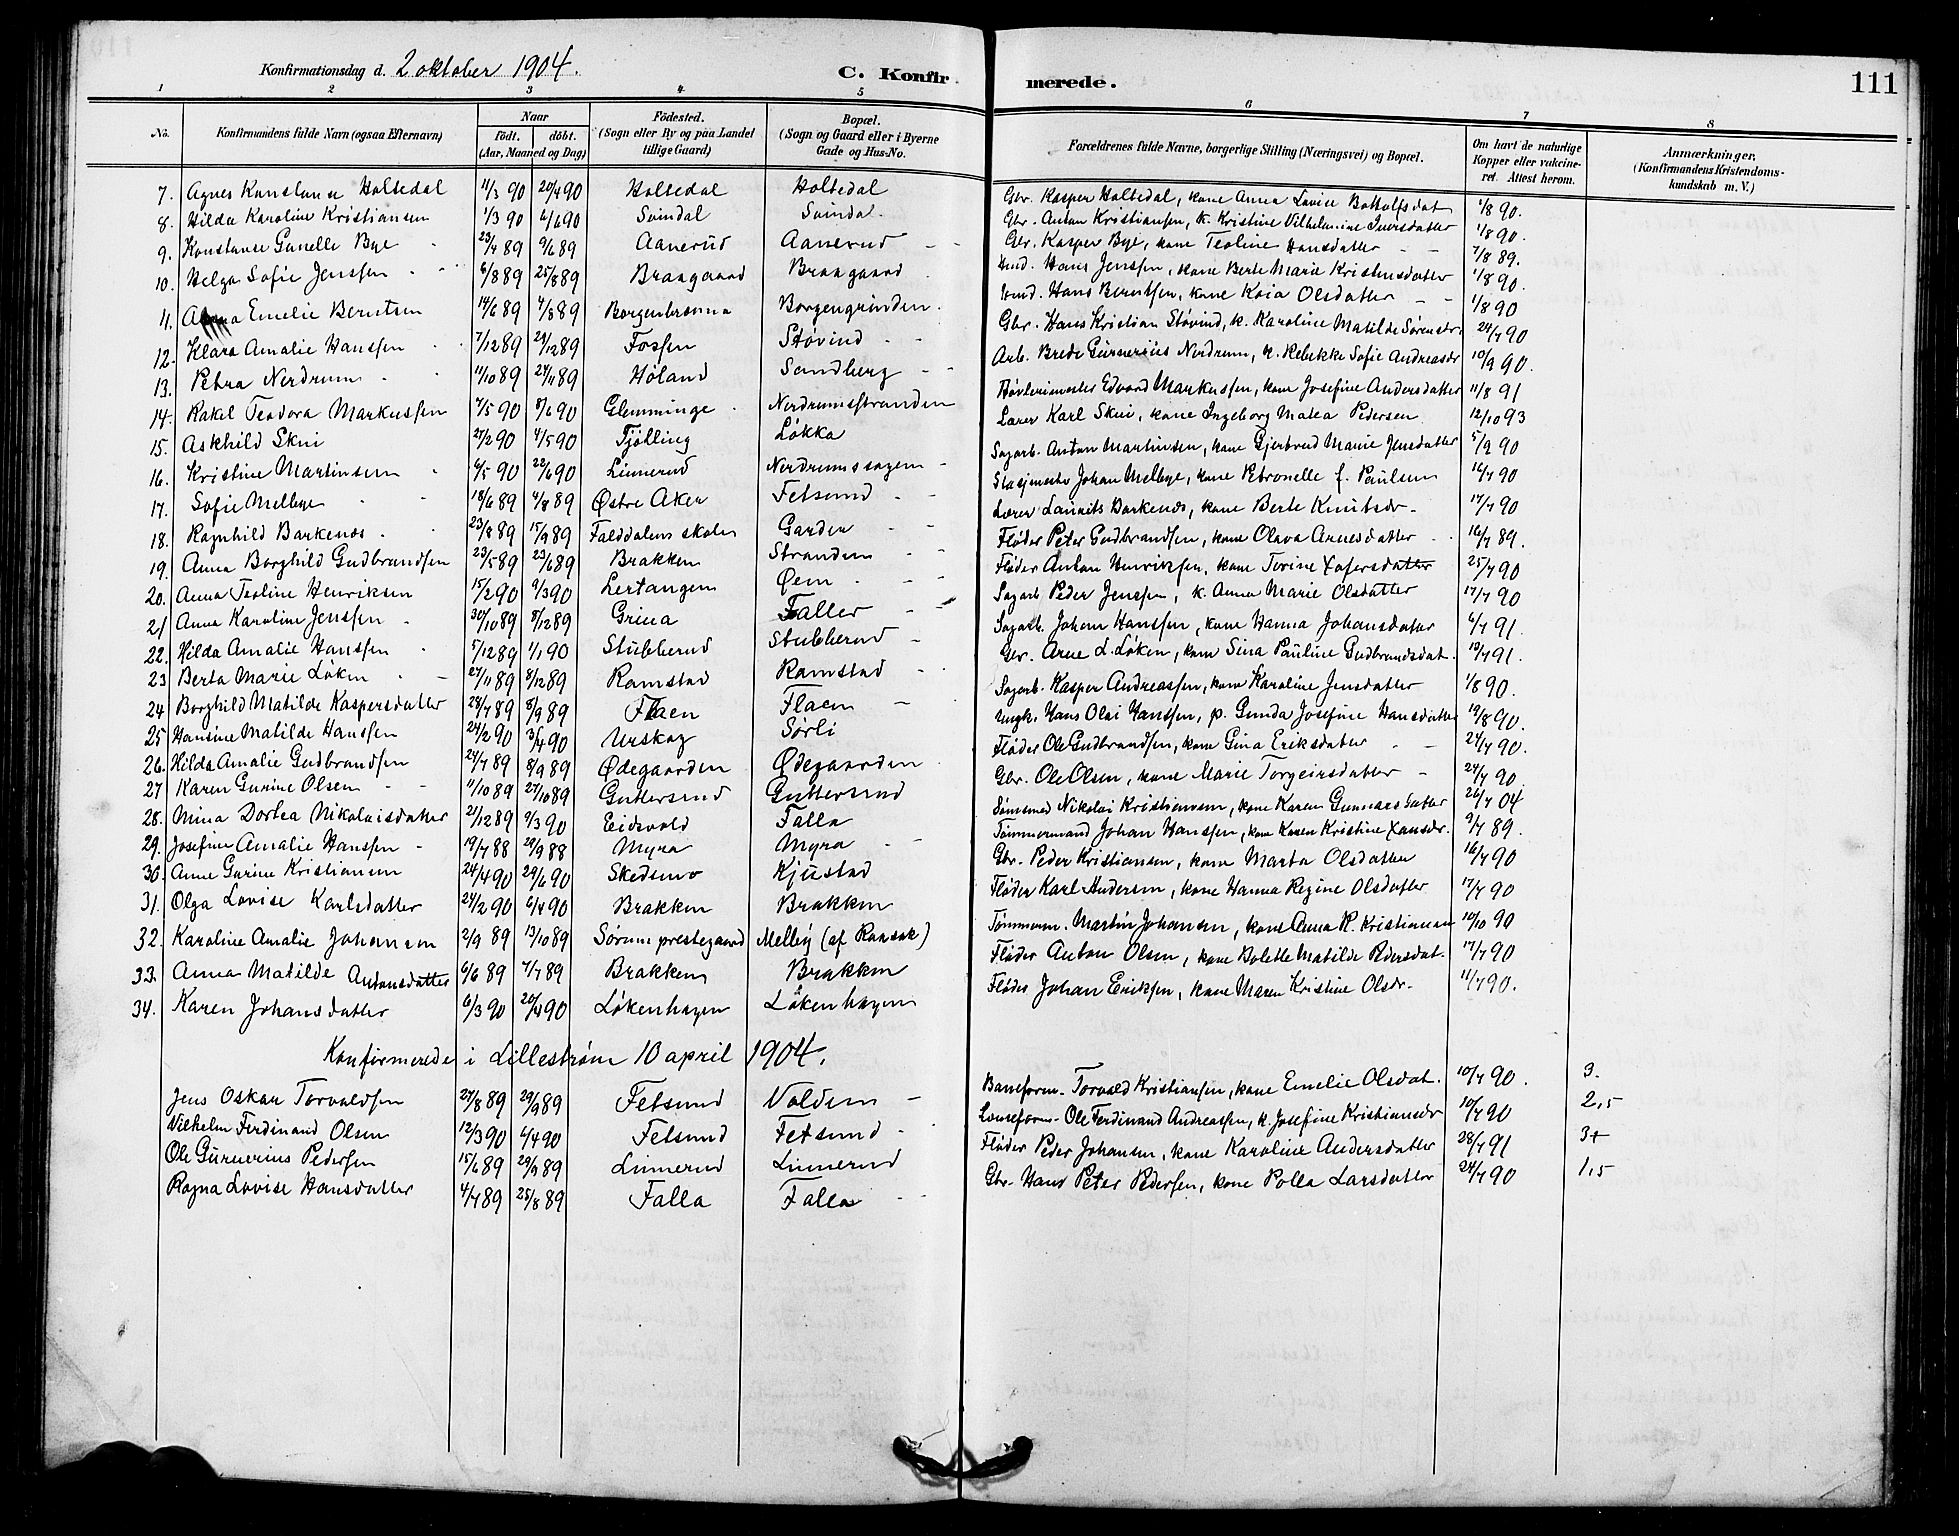 Konfirmationsdag d. 2 oktober 1904. C. Konfirmerede. 111
1 2 3 4 5 6 7 8
No. Konfirmandens fulde Navn (ogsaa Efternavn) Naar Født. døbt. (Aar, Maaned og Dag) Fødested. (Sogn eller By og paa Landet tillige Gaard) Bopæl. (Sogn og Gaard eller i Byerne Gade og Hus-No. Forældrenes fulde Navne, borgerlige Stilling (Næringsvei) og Bopæl. Om havt de naturlige Kopper eller vakcineret. Attest herom. Anmærkninger. (Konfirmandens Kristendomskundskab m. V.)
7. Agnes Konstanse Holtedal 11/3 90 20/4 90 Holtedal Holtedal Gbr. Kasper Holtedal, kone Anna Lovise Bottolfsdat 1/8 90.
8. Hilda Karoline Kristiansen 1/3 90 6/6 90 Svindal Svindal. Gbr. Anton Kristiansen, k. Kristine Vilhelmine Iversdatter 1/8 90.
9. Konstanse Gunelle Bye 23/4 89 9/6 89 Aanerud Aanerud Gbr. Kasper Bye, kone Teoline Hansdatter 7/8 89.
10. Helga Sofie Jenssen 6/8 89 25/8 89 Braagaard Braagaard Hans Jenssen, kone Berte Marie Kristensdatter 1/8 90.
11. Emelie Berntsen 14/6 89 4/8 89 Borgenbraanna Borgengrinden. Hans Berntsen, kone Kaia Olsdatter 1/8 90
12. Klara Amalie Hanssen 7/12 89 29/12 89 Fossen Støvind Gbr. Hans Kristian Støvind, k. Karoline Matilde Sørensdr. 24/7 90
13. Petra Nerdrum 11/10 89 24/11 89 Høland Sandberg Arb. Brede Gurnerius Nerdrum, k. Rebekke Sofie Andreasdr 10/9 90.
14. Rakel Teodora Markussen 7/5 90 8/6 90 Glemminge Nerdrumsstranden Edvard Markussen, kone Josefine Andersdatter 11/8 91
15. Askhild Skui 27/2 90 4/5 90 Tjølling Løkka Lærer Karl Skui, kone Ingeborg Matea Pedersen 12/10 93
16. Kristine Martinsen 6/5 90 22/6 90 Linnerud Nerdrumssagen Sagarb. Anton Martinsen, kone Gjertrud Marie Jensdatter 5/9 90
17. Sofie Melbye 18/6 89 4/8 89 Østre Aker Fetsund Johan Melbye, kone Petronelle f. Paulsen 16/7 90
18. Ragnhild Barkenæs 23/8 89 15/9 89 Falddalens skole Garder Lærer Laurits Barkenæs, kone Berte Knutsdr. 17/7 90
19. Anna Borghild Gudbrandsen 23/5 89 23/6 89 Brakken Stranden Fløder Peter Gudbrandsen, kone Olava Arnesdatter 16/7 89.
20. Anna Teoline Henriksen 15/2 90 9/3 90 Lertangen Øen Fløder Anton Henriksen, kone Torine Xofersdatter 25/7 90
21 Anna Karoline Jenssen 30/10 89 8/12 89 Grina Faller Sagarb Peder Jenssen, k. Anna Marie Olsdatter 17/7 90
22. Hilda Amalie Hanssen 5/12 89 1/1 90 Stubberud Stubberud Sagarb. Johan Hanssen, kone Hanna Johansdatter 6/7 91.
23 Berta Marie Løken 27/11 89 8/12 89 Ramstad Ramstad Gbr. Arne L. Løken, kone Sina Pauline Gudbrandsdat. 19/7 91.
24 Borghild Matilde Kaspersdatter 28/7 89 8/9 89 Flaen Flaen Sagarb. Kasper Andreassen, kone Karoline Jensdatter 1/8 90.
25 Hansine Matilde Hanssen 24/2 90 3/4 90 Urskog Sørli Ungk. Hans Olai Hanssen, p. Gunda Josefine Hansdatter 19/8 90.
26. Hilda Amalie Gudbrandsen 24/7 89 8/9 89 Ødegaarden Ødegaarden Fløder Ole Gudbrandsen, kone Gina Eriksdatter 24/7 90.
27 Karen Gurine Olsen 11/10 89 27/10 89 Guttersrud Guttersrud Gbr. Ole Olsen, kone Marie Torgeirsdatter 24/7 90
28. Mina Dortea Nikolaisdatter 21/12 89 9/3 90 Eidsvold Falla Nikolai Kristiansen, kone Karen Gunnarsdatter 26/7 04
29. Josefine Amalie Hanssen 19/7 88 29/9 88 Myra Myra Tømmermand Johan Hanssen, kone Karen Kristine Xansdr. 9/7 89.
30. Anne Gurine Kristiansen 24/4 90 29/6 90 Skedsmo Kjustad Gbr. Peder Kristiansen, kone Marta Olsdatter 16/7 90
31. Olga Lovise Karlsdatter 24/2 90 6/4 90 Brakken Brakken Fløder Karl Andersen, kone Hanna Regine Olsdatter 17/7 90
32. Karoline Amalie Johansen 2/9 89 13/10 89 Sørum prestegaard Melby (af Ransak) Tømmerm. Martin Johansen, kone Anna K. Kristiansen 10/10 90
33. Anna Matilde Antonsdatter 6/6 89 7/7 89 Brakken Brakken Fløder Anton Olsen, kone Bolette Matilde Pedersdat. 17/7 90
34. Karen Johansdatter 6/3 90 20/4 90 Løkenhagen Løkenhagen Fløder Johan Eriksen, kone Maren Kristine Olsdr. 11/7 90.
Konfirmerede i Lillestrøm 10 april 1904.
Jens Oskar Torvaldsen 27/8 89 29/9 89 Fetsund Volden Baneform. Torvald Kristiansen, kone Emelie Olsdat. 10/7 90. 3.
Vilhelm Ferdinand Olsen 12/3 90 6/4 90 Fetsund Fetsund Ole Ferdinand Andreassen, k. Josefine Kristiansdr 10/7 90 2,5
Ole Gurnerius Pedersen 15/6 89 29/9 89 Linnerud Linnerud Fløder Peder Johansen, kone Karoline Andersdatter 28/7 91 3+
Ragna Lovise Hansdatter 4/7 89 25/8 89 Falla Falla Gbr. Hans Peter Pedersen, kone Polla Larsdatter 24/7 90 1,5